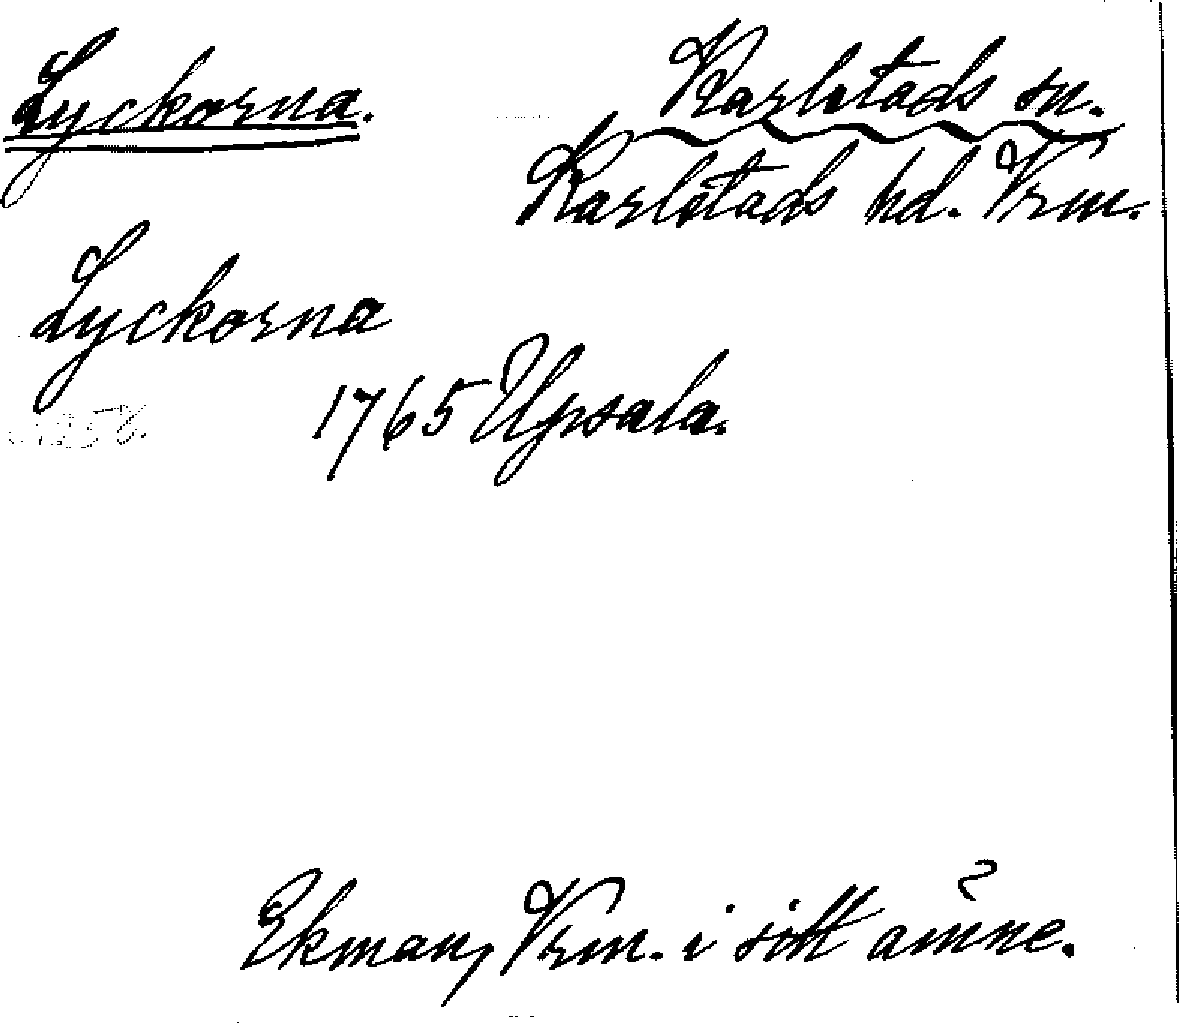 Lyckorna.
Karlstads sn.
Karlstads hd. Vrm.
Lyckorna
1765 Upsala.
Ekman, Vrm. i sitt ämne.